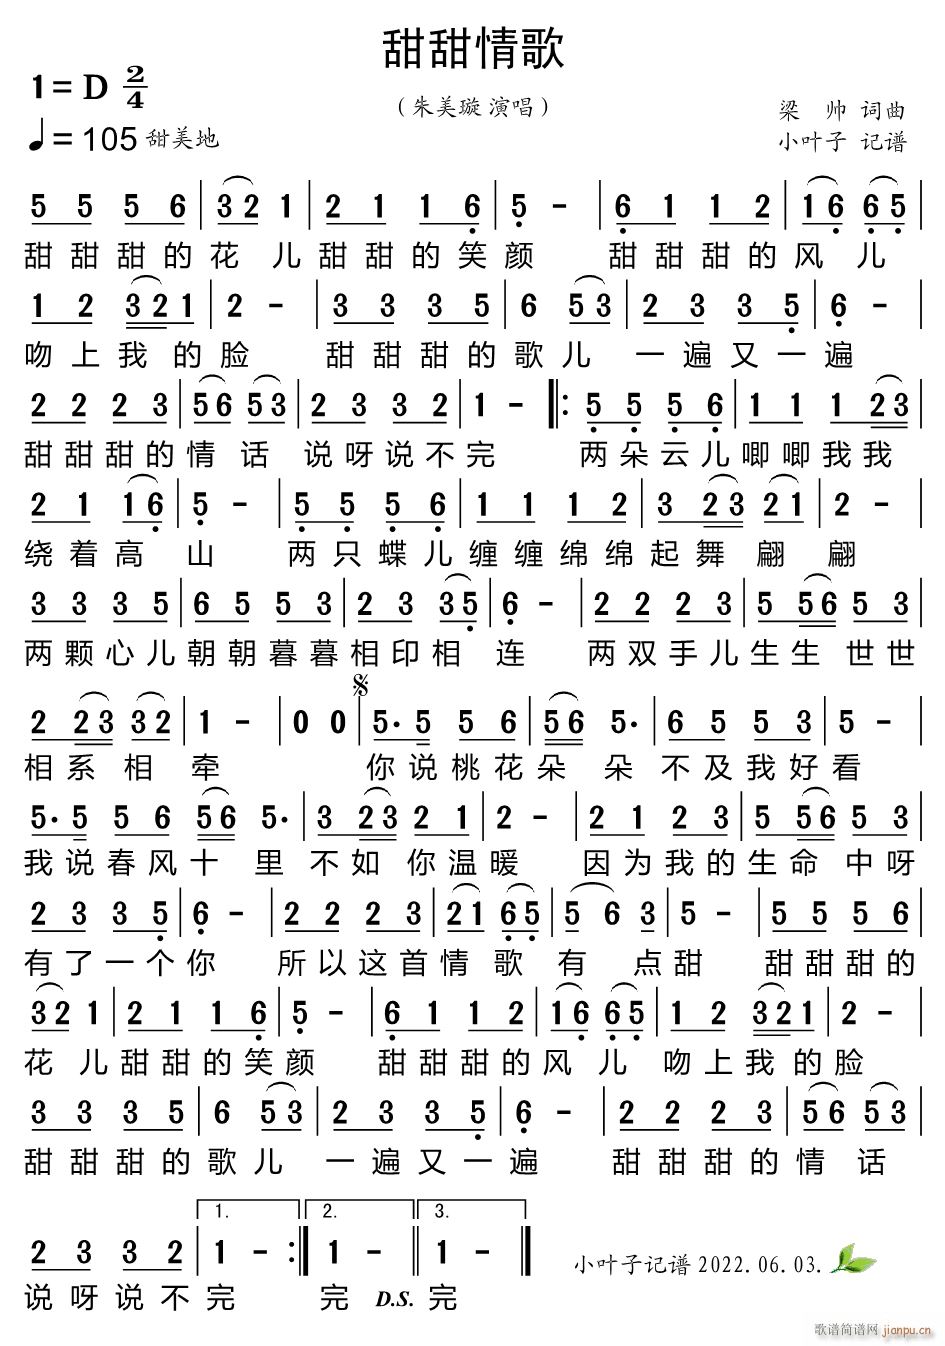 甜甜情歌
1=D 2/4
（朱美璇 演唱）
梁 帅 词曲
♩=105 甜美地
小叶子 记谱
5 5 5 6 | 3 2 1 | 2 1 1 6 | 5 - | 6 1 1 2 | 1 6 6 5 |
甜 甜 甜 的 花 儿 甜 甜 的 笑 颜 甜 甜 甜 的 风 儿
1 2 3 2 1 | 2 - | 3 3 3 5 | 6 5 3 | 2 3 3 5 | 6 - |
吻 上 我 的 脸 甜 甜 甜 的 歌 儿 一 遍 又 一 遍
2 2 2 3 | 5 6 5 3 | 2 3 3 2 | 1 - ‖: 5 5 5 6 | 1 1 1 2 3 |
甜 甜 甜 的 情 话 说 呀 说 不 完 两 朵 云 儿 唧 唧 我 我
2 1 1 6 | 5 - | 5 5 5 6 | 1 1 1 2 | 3 2 3 2 1 | 2 - |
绕 着 高 山 两 只 蝶 儿 缠 缠 绵 绵 起 舞 翩 翩
3 3 3 5 | 6 5 5 3 | 2 3 3 5 | 6 - | 2 2 2 3 | 5 5 6 5 3 |
两 颗 心 儿 朝 朝 暮 暮 相 印 相 连 两 双 手 儿 生 生 世 世
𝄋
2 2 3 3 2 | 1 - | 0 0 | 5· 5 5 6 | 5 6 5· | 6 5 5 3 | 5 - |
相 系 相 牵 你 说 桃 花 朵 朵 不 及 我 好 看
5· 5 5 6 | 5 6 5· | 3 2 3 2 1 | 2 - | 2 1 2 3 | 5 5 6 5 3 |
我 说 春 风 十 里 不 如 你 温 暖 因 为 我 的 生 命 中 呀
2 3 3 5 | 6 - | 2 2 2 3 | 2 1 6 5 | 5 6 3 | 5 - | 5 5 5 6 |
有 了 一 个 你 所 以 这 首 情 歌 有 点 甜 甜 甜 甜 的
3 2 1 | 2 1 1 6 | 5 - | 6 1 1 2 | 1 6 6 5 | 1 2 3 2 1 | 2 - |
花 儿 甜 甜 的 笑 颜 甜 甜 甜 的 风 儿 吻 上 我 的 脸
3 3 3 5 | 6 5 3 | 2 3 3 5 | 6 - | 2 2 2 3 | 5 6 5 3 |
甜 甜 甜 的 歌 儿 一 遍 又 一 遍 甜 甜 甜 的 情 话
1. 2. 3.
2 3 3 2 | 1 - :‖ 1 - ‖ 1 - ‖
小叶子记谱 2022.06.03.
说 呀 说 不 完 完 D.S. 完
歌谱简谱网
jianpu.cn